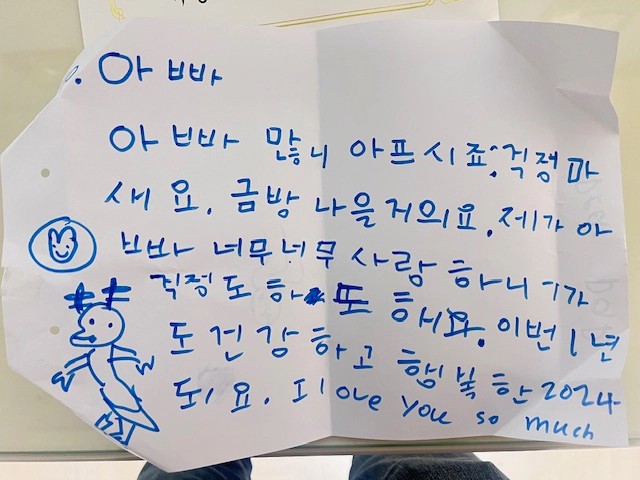 아빠
아빠 많니 아프시죠. 걱정마
새요. 금방 나을거의요. 제가 아
빠 너무너무 사랑 하니가
걱정도 하 또 해요. 이번 1년
도 건강하고 행복한 2024
되요. I love you so much